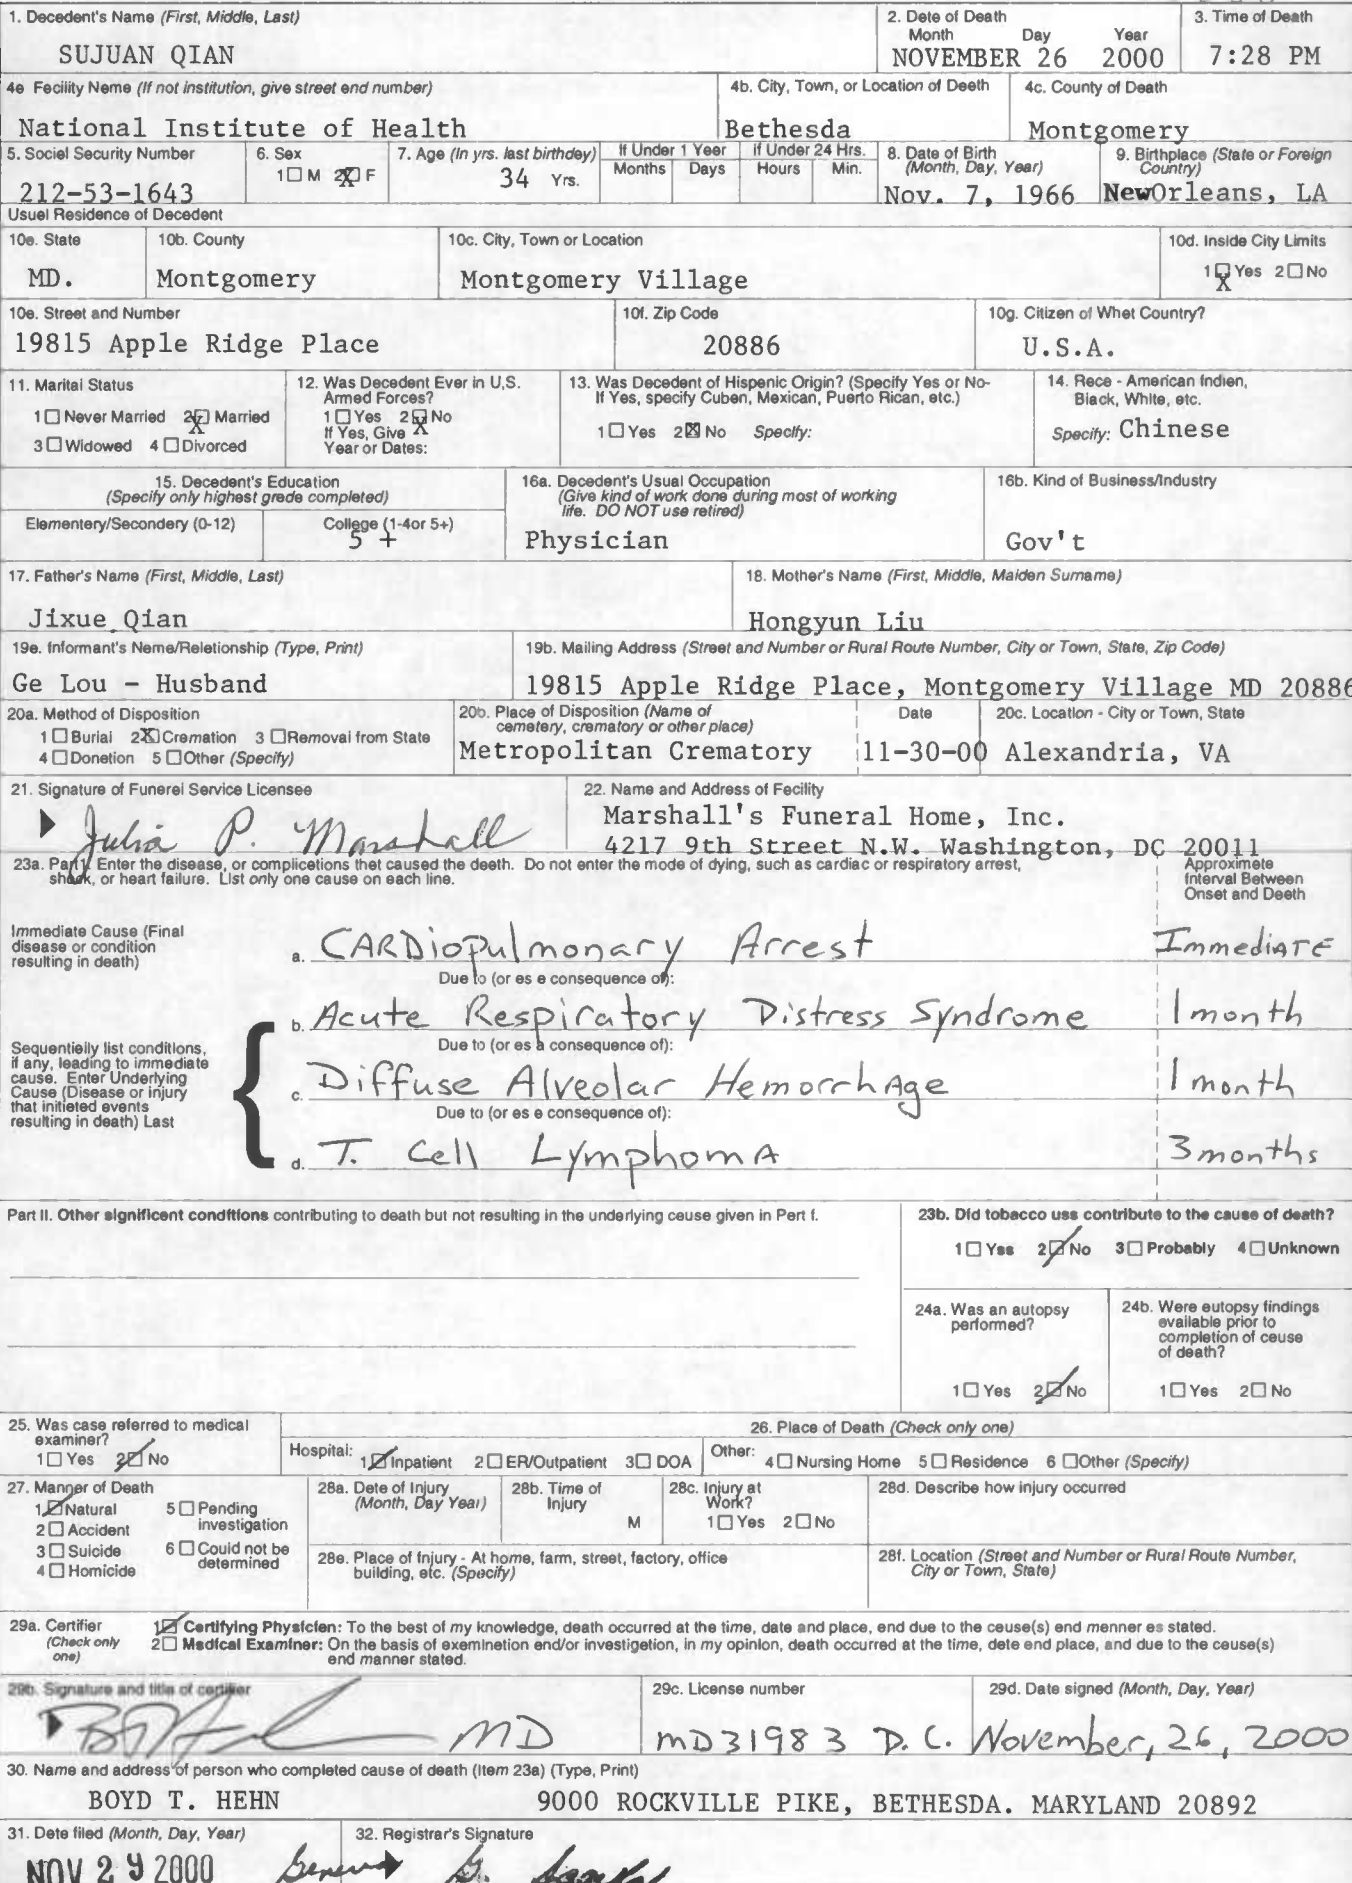 1. Decedent's Name (First, Middle, Last)
SUJUAN QIAN
2. Dete of Death
Month Day Year
NOVEMBER 26 2000
3. Time of Death
7:28 PM
4e Fecility Neme (If not institution, give street end number)
National Institute of Health
4b. City, Town, or Location of Deeth
Bethesda
4c. County of Death
Montgomery
5. Sociel Security Number
212-53-1643
6. Sex
1☐ M 2☒ F
7. Age (In yrs. last birthdey)
34 Yrs.
If Under 1 Yeer
Months Days
If Under 24 Hrs.
Hours Min.
8. Date of Birth
(Month, Day, Year)
Nov. 7, 1966
9. Birthplace (State or Foreign
Country)
NewOrleans, LA
Usuel Residence of Decedent
10e. State
MD.
10b. County
Montgomery
10c. City, Town or Location
Montgomery Village
10d. Inside City Limits
1☒ Yes 2☐ No
10e. Street and Number
19815 Apple Ridge Place
10f. Zip Code
20886
10g. Citizen of Whet Country?
U.S.A.
11. Marital Status
1☐ Never Married 2☒ Married
3☐ Widowed 4☐ Divorced
12. Was Decedent Ever in U.S.
Armed Forces?
1☐ Yes 2☒ No
If Yes, Give
Year or Dates:
13. Was Decedent of Hispenic Origin? (Specify Yes or No-
If Yes, specify Cuben, Mexican, Puerto Rican, etc.)
1☐ Yes 2☒ No Specify:
14. Rece - American Indien,
Black, White, etc.
Specify: Chinese
15. Decedent's Education
(Specify only highest grede completed)
Elementery/Secondery (0-12)
College (1-4or 5+)
5 +
16a. Decedent's Usual Occupation
(Give kind of work done during most of working
life. DO NOT use retired)
Physician
16b. Kind of Business/Industry
Gov't
17. Father's Name (First, Middle, Last)
Jixue Qian
18. Mother's Name (First, Middle, Maiden Surname)
Hongyun Liu
19e. Informant's Neme/Reletionship (Type, Print)
Ge Lou - Husband
19b. Mailing Address (Street and Number or Rural Route Number, City or Town, State, Zip Code)
19815 Apple Ridge Place, Montgomery Village MD 20886
20a. Method of Disposition
1☐ Burial 2☒ Cremation 3☐ Removal from State
4☐ Donetion 5☐ Other (Specify)
20b. Place of Disposition (Name of
cemetery, crematory or other place)
Metropolitan Crematory
Date
11-30-00
20c. Location - City or Town, State
Alexandria, VA
21. Signature of Funerel Service Licensee
Julia P. Marshall
22. Name and Address of Fecility
Marshall's Funeral Home, Inc.
4217 9th Street N.W. Washington, DC 20011
23a. Part I. Enter the disease, or complicetions thet caused the deeth. Do not enter the mode of dying, such as cardiac or respiratory arrest,
shock, or heart failure. List only one cause on each line.
Approximete
Interval Between
Onset and Deeth
Immediate Cause (Final
disease or condition
resulting in death)
a. CARDiopulmonary Arrest ImmediATE
Due to (or es e consequence of):
b. Acute Respiratory Distress Syndrome 1 month
Due to (or es a consequence of):
Sequentielly list conditions,
if any, leading to immediate
cause. Enter Underlying
Cause (Disease or injury
that initieted events
resulting in death) Last
c. Diffuse Alveolar HemorrhAge 1 month
Due to (or es e consequence of):
d. T. Cell LymphomA 3 months
Part II. Other significent conditions contributing to death but not resulting in the underlying ceuse given in Pert I.
23b. Did tobacco uss contribute to the cause of death?
1☐ Yss 2☑ No 3☐ Probably 4☐ Unknown
24a. Was an autopsy
performed?
1☐ Yes 2☑ No
24b. Were eutopsy findings
eveilable prior to
completion of ceuse
of death?
1☐ Yes 2☐ No
25. Was case referred to medical
examiner?
1☐ Yes 2☑ No
26. Place of Death (Check only one)
Hospital: 1☑ Inpatient 2☐ ER/Outpatient 3☐ DOA
Other: 4☐ Nursing Home 5☐ Residence 6☐ Other (Specify)
27. Manner of Death
1☑ Natural 5☐ Pending
investigation
2☐ Accident
3☐ Suicide 6☐ Could not be
determined
4☐ Homicide
28a. Dete of Injury
(Month, Day Year)
28b. Time of
Injury
M
28c. Injury at
Work?
1☐ Yes 2☐ No
28d. Describe how injury occurred
28e. Place of Injury - At home, farm, street, factory, office
building, etc. (Specify)
28f. Location (Street and Number or Rural Route Number,
City or Town, State)
29a. Certifier
(Check only
one)
1☑ Certifying Physicien: To the best of my knowledge, death occurred at the time, date and place, end due to the ceuse(s) end menner es stated.
2☐ Medical Examiner: On the basis of exeminetion end/or investigetion, in my opinion, death occurred at the time, dete end place, and due to the ceuse(s)
end manner stated.
29b. Signature and title of certifier
MD
29c. License number
MD31983 D.C.
29d. Date signed (Month, Day, Year)
November, 26, 2000
30. Name and address of person who completed cause of death (Item 23a) (Type, Print)
BOYD T. HEHN 9000 ROCKVILLE PIKE, BETHESDA. MARYLAND 20892
31. Dete filed (Month, Day, Year)
NOV 29 2000
32. Registrar's Signature
Geneva G.